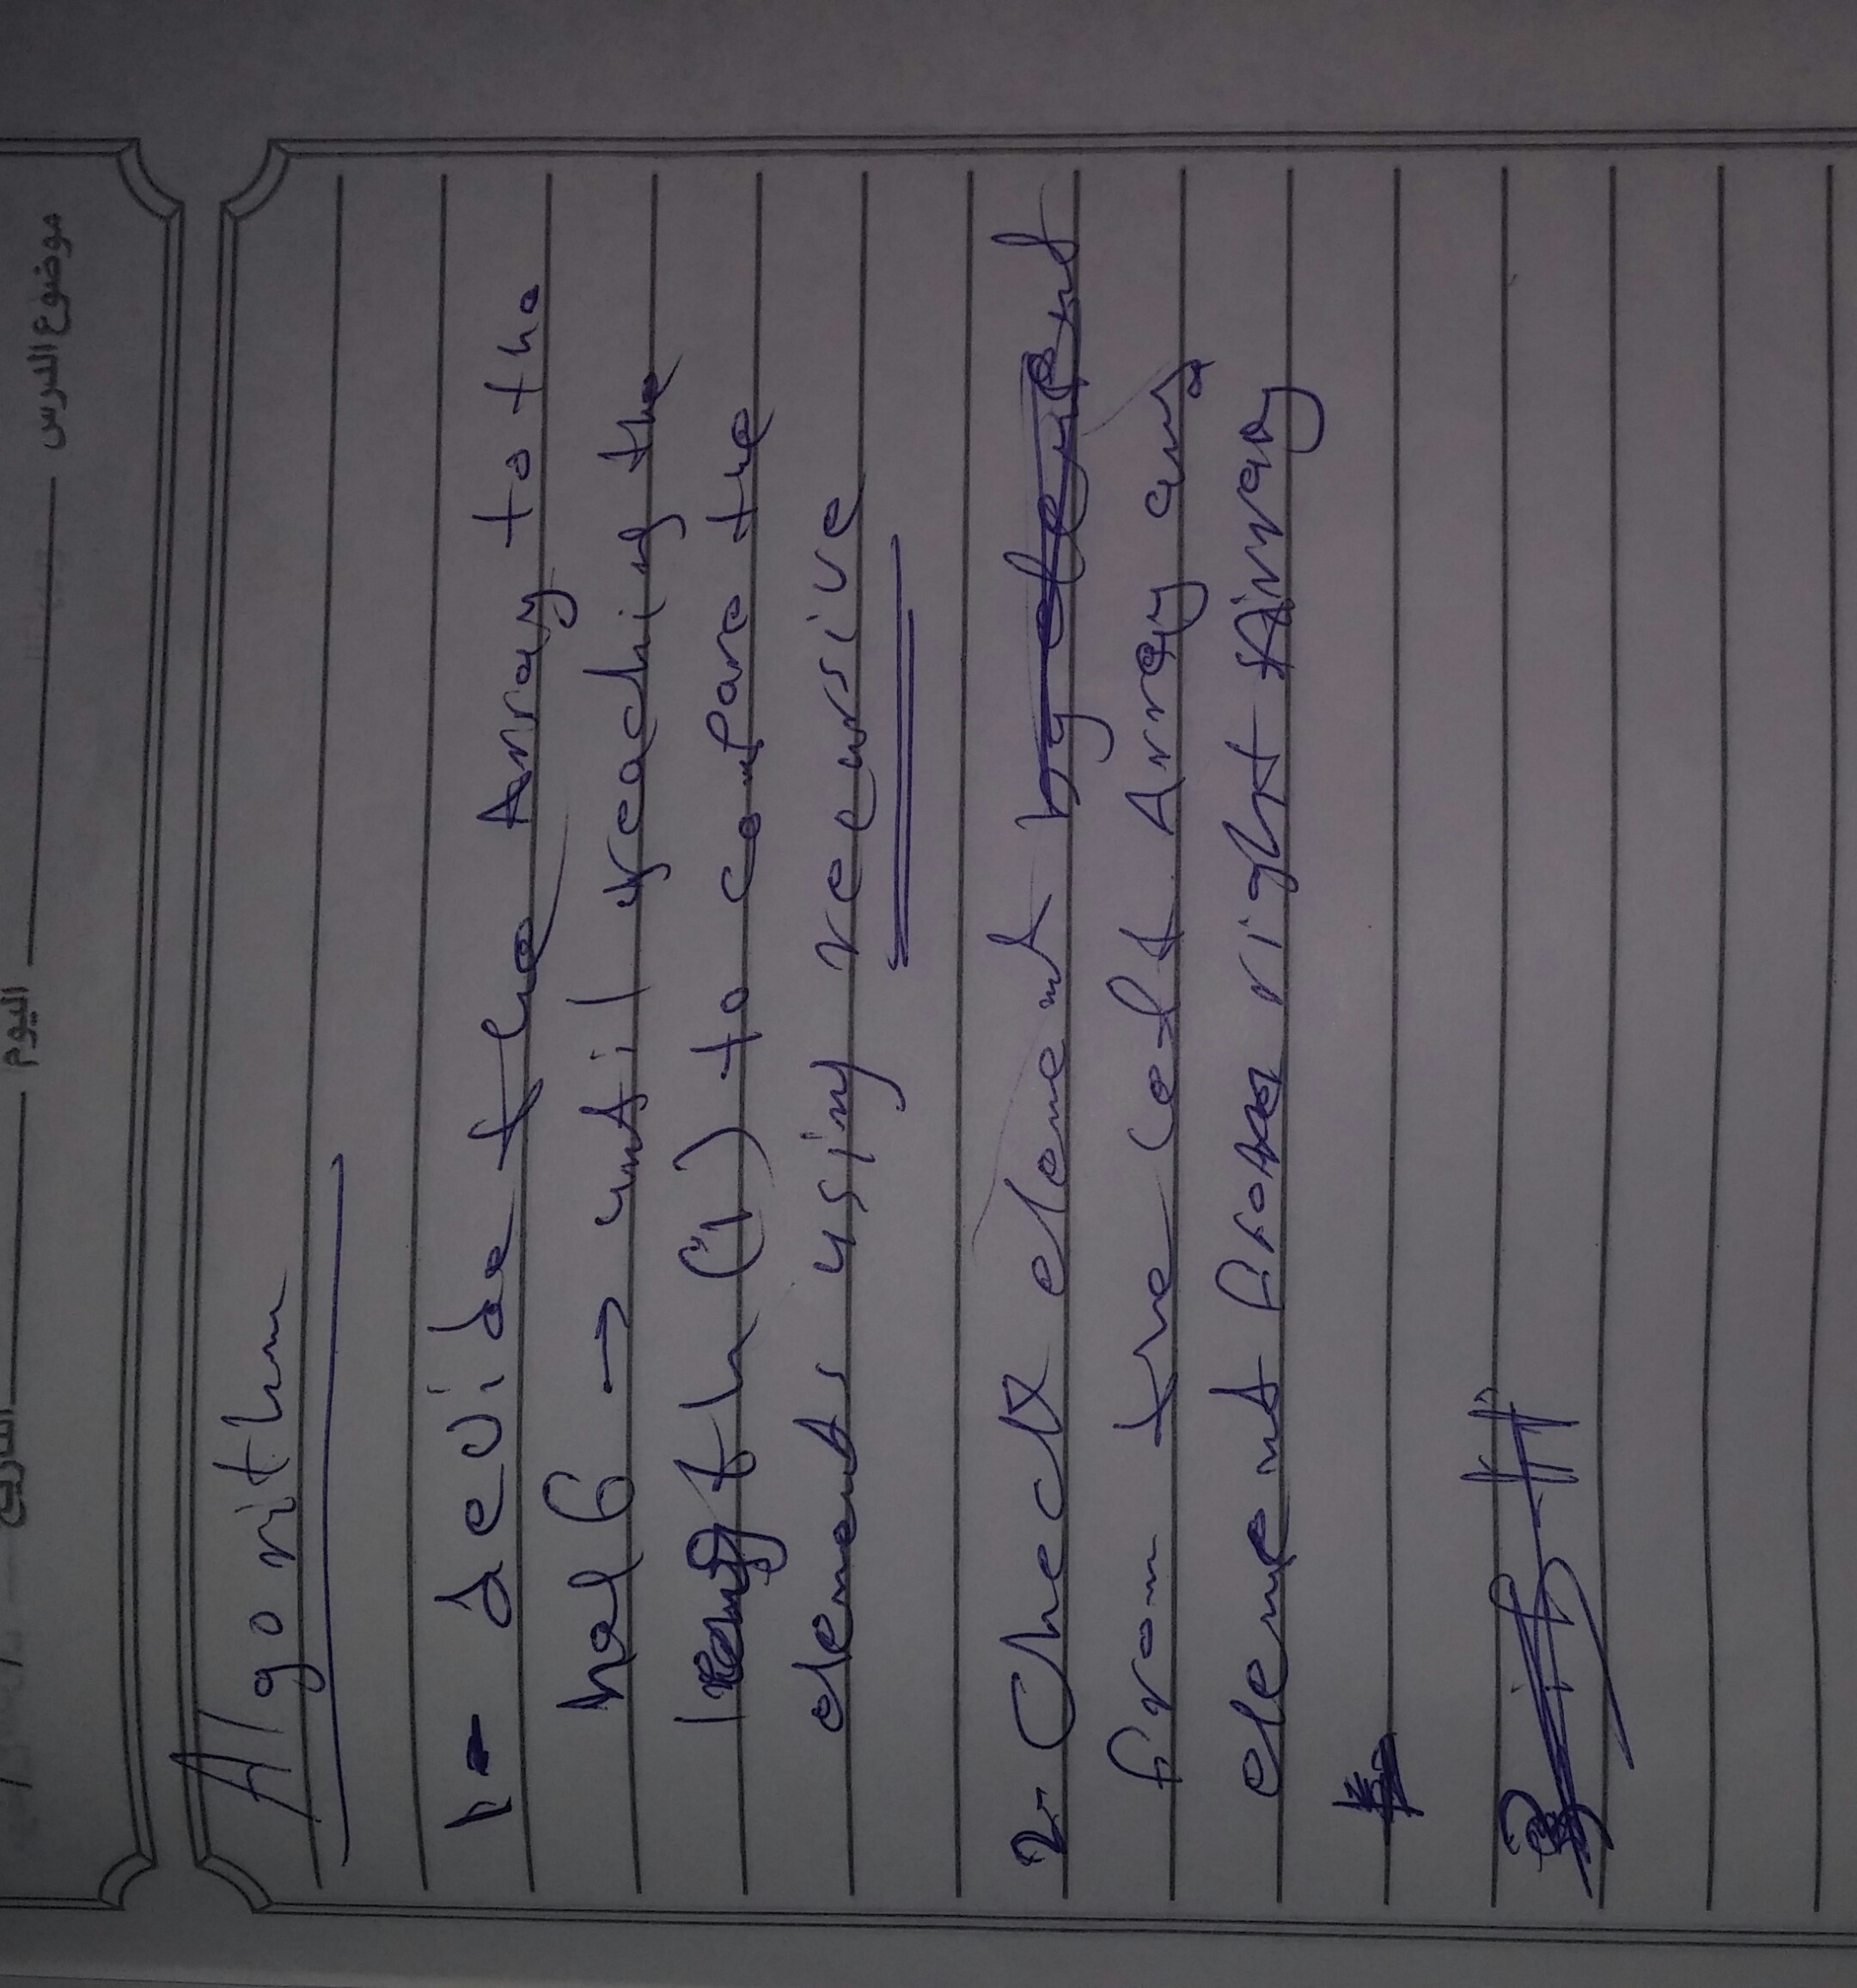 موضوع الدرس
اليوم
التاريخ
Algorithm
1- devide the Array to the
half → until reaching the
length (1) to compare the
elements using recursive
2- Check element
from the left Array any
element from right Array